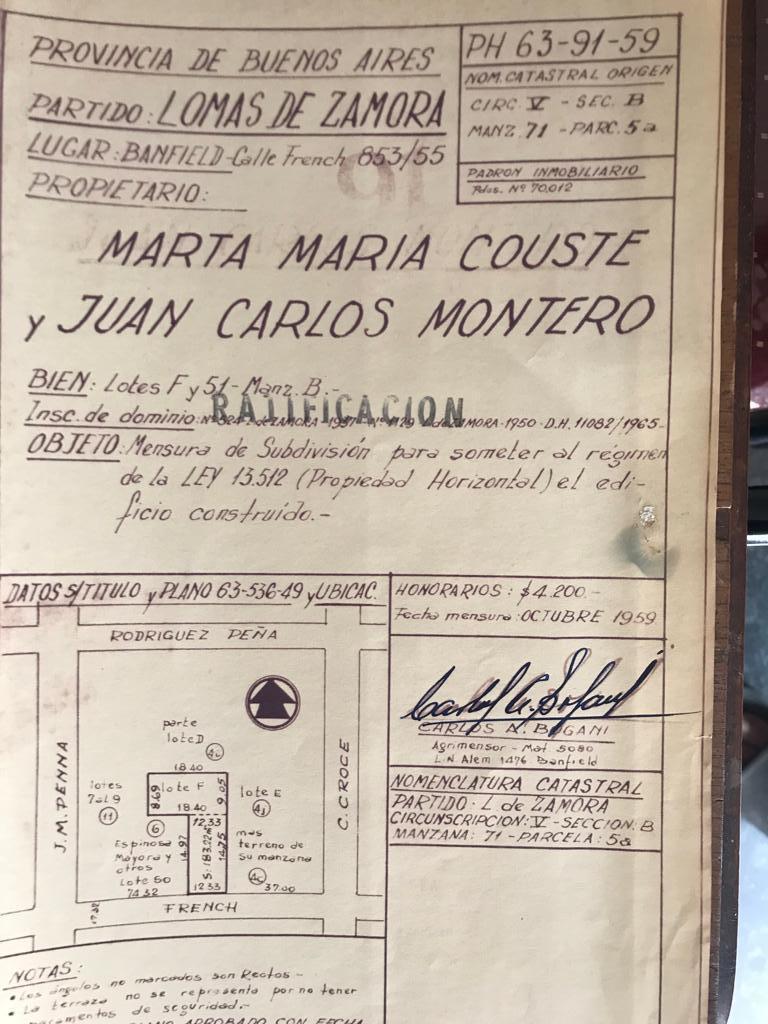 PROVINCIA DE BUENOS AIRES
PARTIDO: LOMAS DE ZAMORA
LUGAR: BANFIELD - Calle French 853/55
PROPIETARIO:
PH 63-91-59
NOM. CATASTRAL ORIGEN
CIRC. V - SEC. B
MANZ. 71 - PARC. 5a
PADRON INMOBILIARIO
Pdas. Nº 70.012
MARTA MARIA COUSTE
y JUAN CARLOS MONTERO
BIEN: Lotes F y 51 - Manz. B.-
RATIFICACION
Insc. de dominio ZAMORA - 1950 - D.H. 11082/1965-
OBJETO: Mensura de Subdivisión para someter al régimen
de la LEY 13.512 (Propiedad Horizontal) el edi-
ficio construído.-
DATOS S/TITULO y PLANO 63-536-49 y UBICAC.
HONORARIOS: $ 4.200.-
Fecha mensura: OCTUBRE 1959
RODRIGUEZ PEÑA
J. M. PENNA
C. CROCE
parte
lote D
18.40
lotes
7 al 9
11
8.69
lote F
9.05
18.40
lote E
4j
6
12.33
Espinosa
Mayora y
otros
Lote 50
74.32
14.97
14.75
12.33
mas
terreno de
su manzana
4c
37.00
FRENCH
17.32
CARLOS A. BUGANI
Agrimensor - Mat 5080
L.N. Alem 1476 Banfield
NOMENCLATURA CATASTRAL
PARTIDO: L. de ZAMORA
CIRCUNSCRIPCION: V - SECCION: B
MANZANA: 71 - PARCELA: 5a
NOTAS:
• Los ángulos no marcados son Rectos -
• La terraza no se representa por no tener
paramentos de seguridad.-
PLANO APROBADO CON FECHA